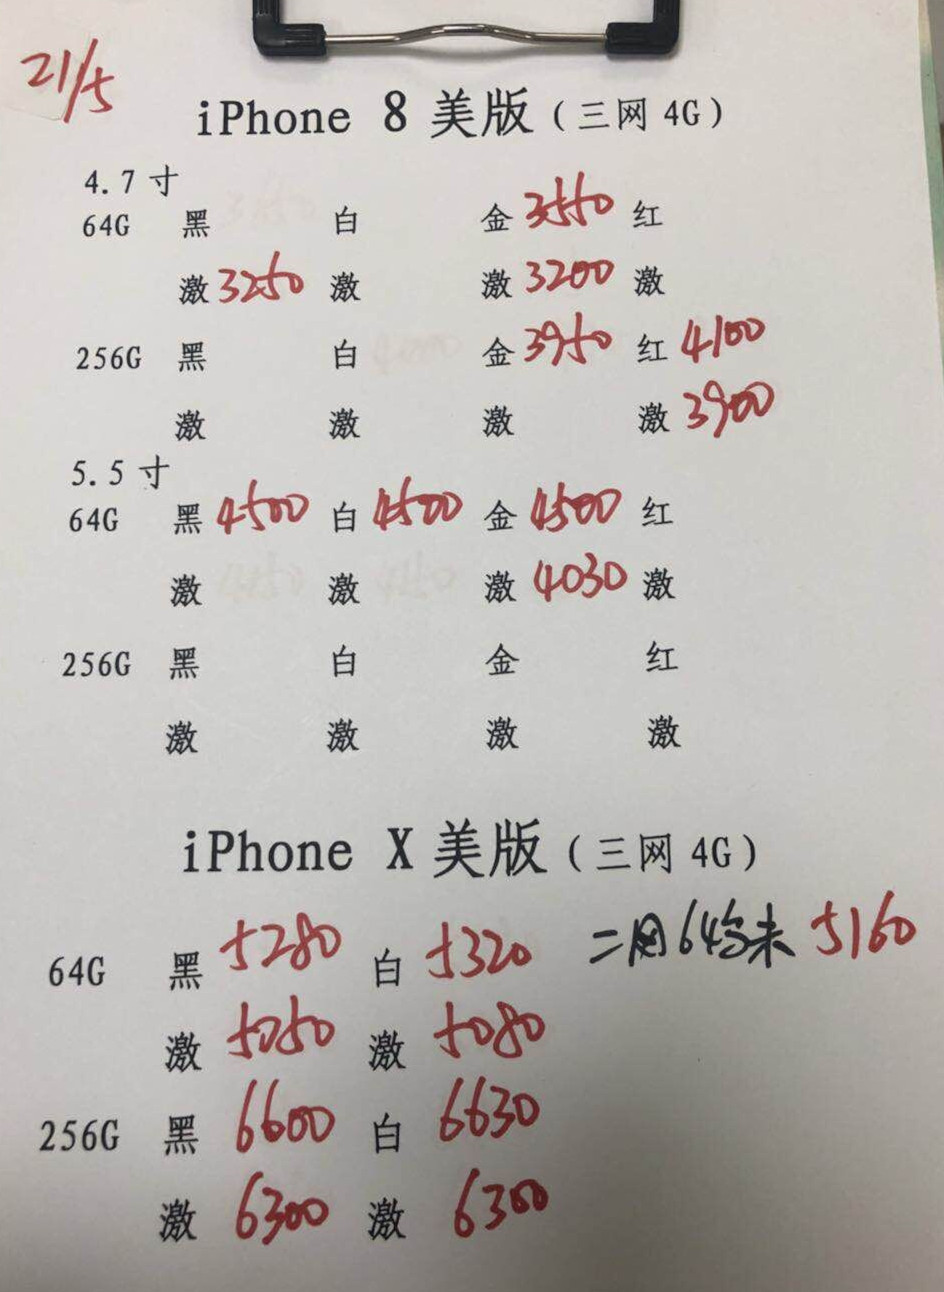 21/5
iPhone 8 美版（三网 4G）
4.7 寸
64G 黑 白 金 3550 红
激 3250 激 激 3200 激
256G 黑 白 金 3950 红 4100
激 激 激 激 3900
5.5 寸
64G 黑 4500 白 4500 金 4500 红
激 激 激 4030 激
256G 黑 白 金 红
激 激 激 激
iPhone X 美版（三网 4G）
64G 黑 5280 白 5320 二网 64 未 5160
激 5050 激 5080
256G 黑 6600 白 6630
激 6300 激 6300